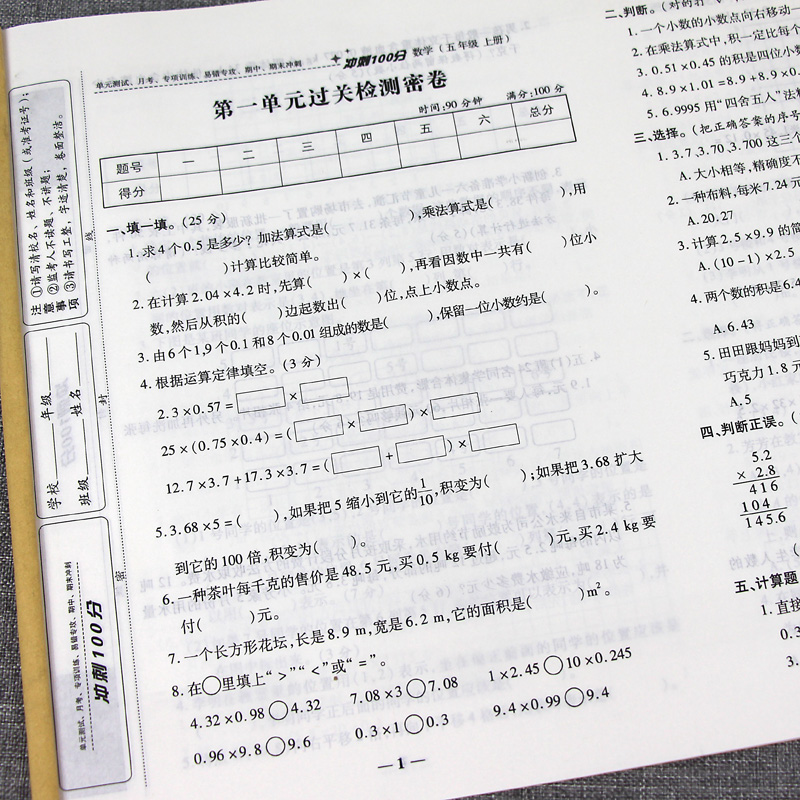 单元测试、月考、专项训练、易错专攻、期中、期末冲刺 冲刺100分 数学(五年级 上册)
第一单元过关检测密卷
时间:90分钟 满分:100分
题号 一 二 三 四 五 六 总分
得分
一、填一填。(25分)
1.求4个0.5是多少?加法算式是( ),乘法算式是( ),用
( )计算比较简单。
2.在计算2.04×4.2时,先算( )×( ),再看因数中一共有( )位小
数,然后从积的( )边起数出( )位,点上小数点。
3.由6个1,9个0.1和8个0.01组成的数是( ),保留一位小数约是( )。
4.根据运算定律填空。(3分)
2.3×0.57=□×□
25×(0.75×0.4)=(□×□)×□
12.7×3.7+17.3×3.7=(□+□)×□
5.3.68×5=( ),如果把5缩小到它的1/10,积变为( );如果把3.68扩大
到它的100倍,积变为( )。
6.一种茶叶每千克的售价是48.5元,买0.5 kg要付( )元,买2.4 kg要
付( )元。
7.一个长方形花坛,长是8.9 m,宽是6.2 m,它的面积是( )m²。
8.在○里填上“>”“<”或“=”。
4.32×0.98○4.32 7.08×3○7.08 1×2.45○10×0.245
0.96×9.8○9.6 0.3×1○0.3 9.4×0.99○9.4
—1—
注意事项
①请写清校名、姓名和班级(或准考证号);
②监考人不读题、不讲题;
③请书写工整,字迹清楚,卷面整洁。
学校 年级
班级 姓名
单元测试、月考、专项训练、易错专攻、期中、期末冲刺
冲刺100分
线
封
密
二、判断。(对的打
1.一个小数的小数点向右移动一
2.在乘法算式中,积一定比每个
3.0.51×0.45的积是四位小
4.8.9×1.01=8.9+8.9×0.
5.6.9995用“四舍五入”法
三、选择。(把正确答案的序号
1.3.7、3.70、3.700这三个
A.大小相等,精确度不
2.一种布料,每米7.24元
A.20.27
3.计算2.5×9.9的简
A.(10-1)×2.5
4.两个数的积是6.4
A.6.43
5.田田跟妈妈到
巧克力1.8元
A.5
四、判断正误。(
5.2
× 2.8
416
104
145.6
五、计算题
1.直接
0.3
3.